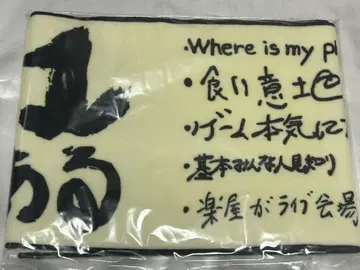 ・Where is my
・食い意地
・ゲーム本気に
・基本みんな人見知り
・楽屋がライブ会場